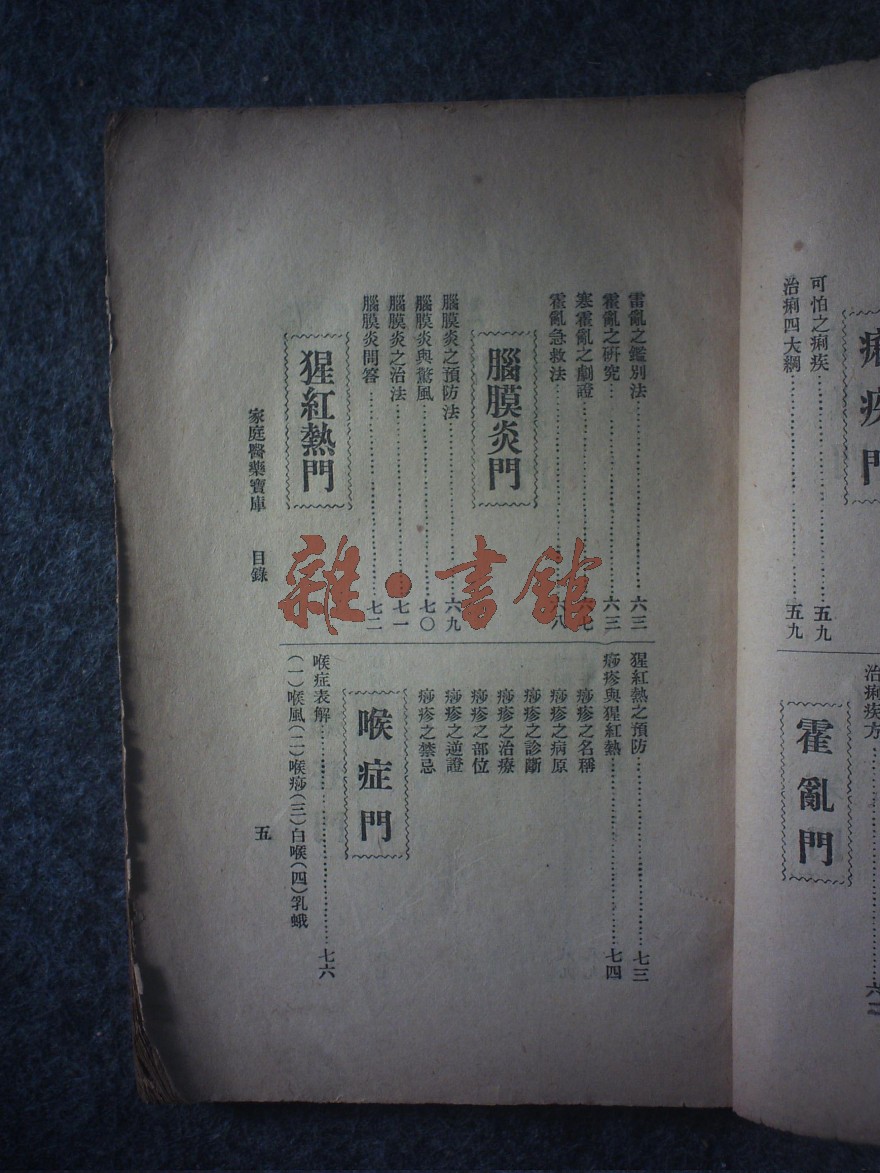 疾門
可怕之痢疾……………五九
治痢四大綱……………五九
治痢疾方……………
霍亂門
雷亂之鑑別法……………六三
霍亂之研究……………六三
寒霍亂之劇證……………七
霍亂急救法……………六八
腦膜炎門
腦膜炎之預防法……………六九
腦膜炎與驚風……………七〇
腦膜炎之治法……………七一
腦膜炎問答……………七二
猩紅熱門
猩紅熱之預防……………七三
痧疹與猩紅熱……………七四
痧疹之名稱
痧疹之病原
痧疹之診斷
痧疹之治療
痧疹之部位
痧疹之逆證
痧疹之禁忌
喉症門
喉症表解……………七六
(一)喉風(二)喉痧(三)白喉(四)乳蛾
家庭醫藥寶庫 目錄 五
雜·書館